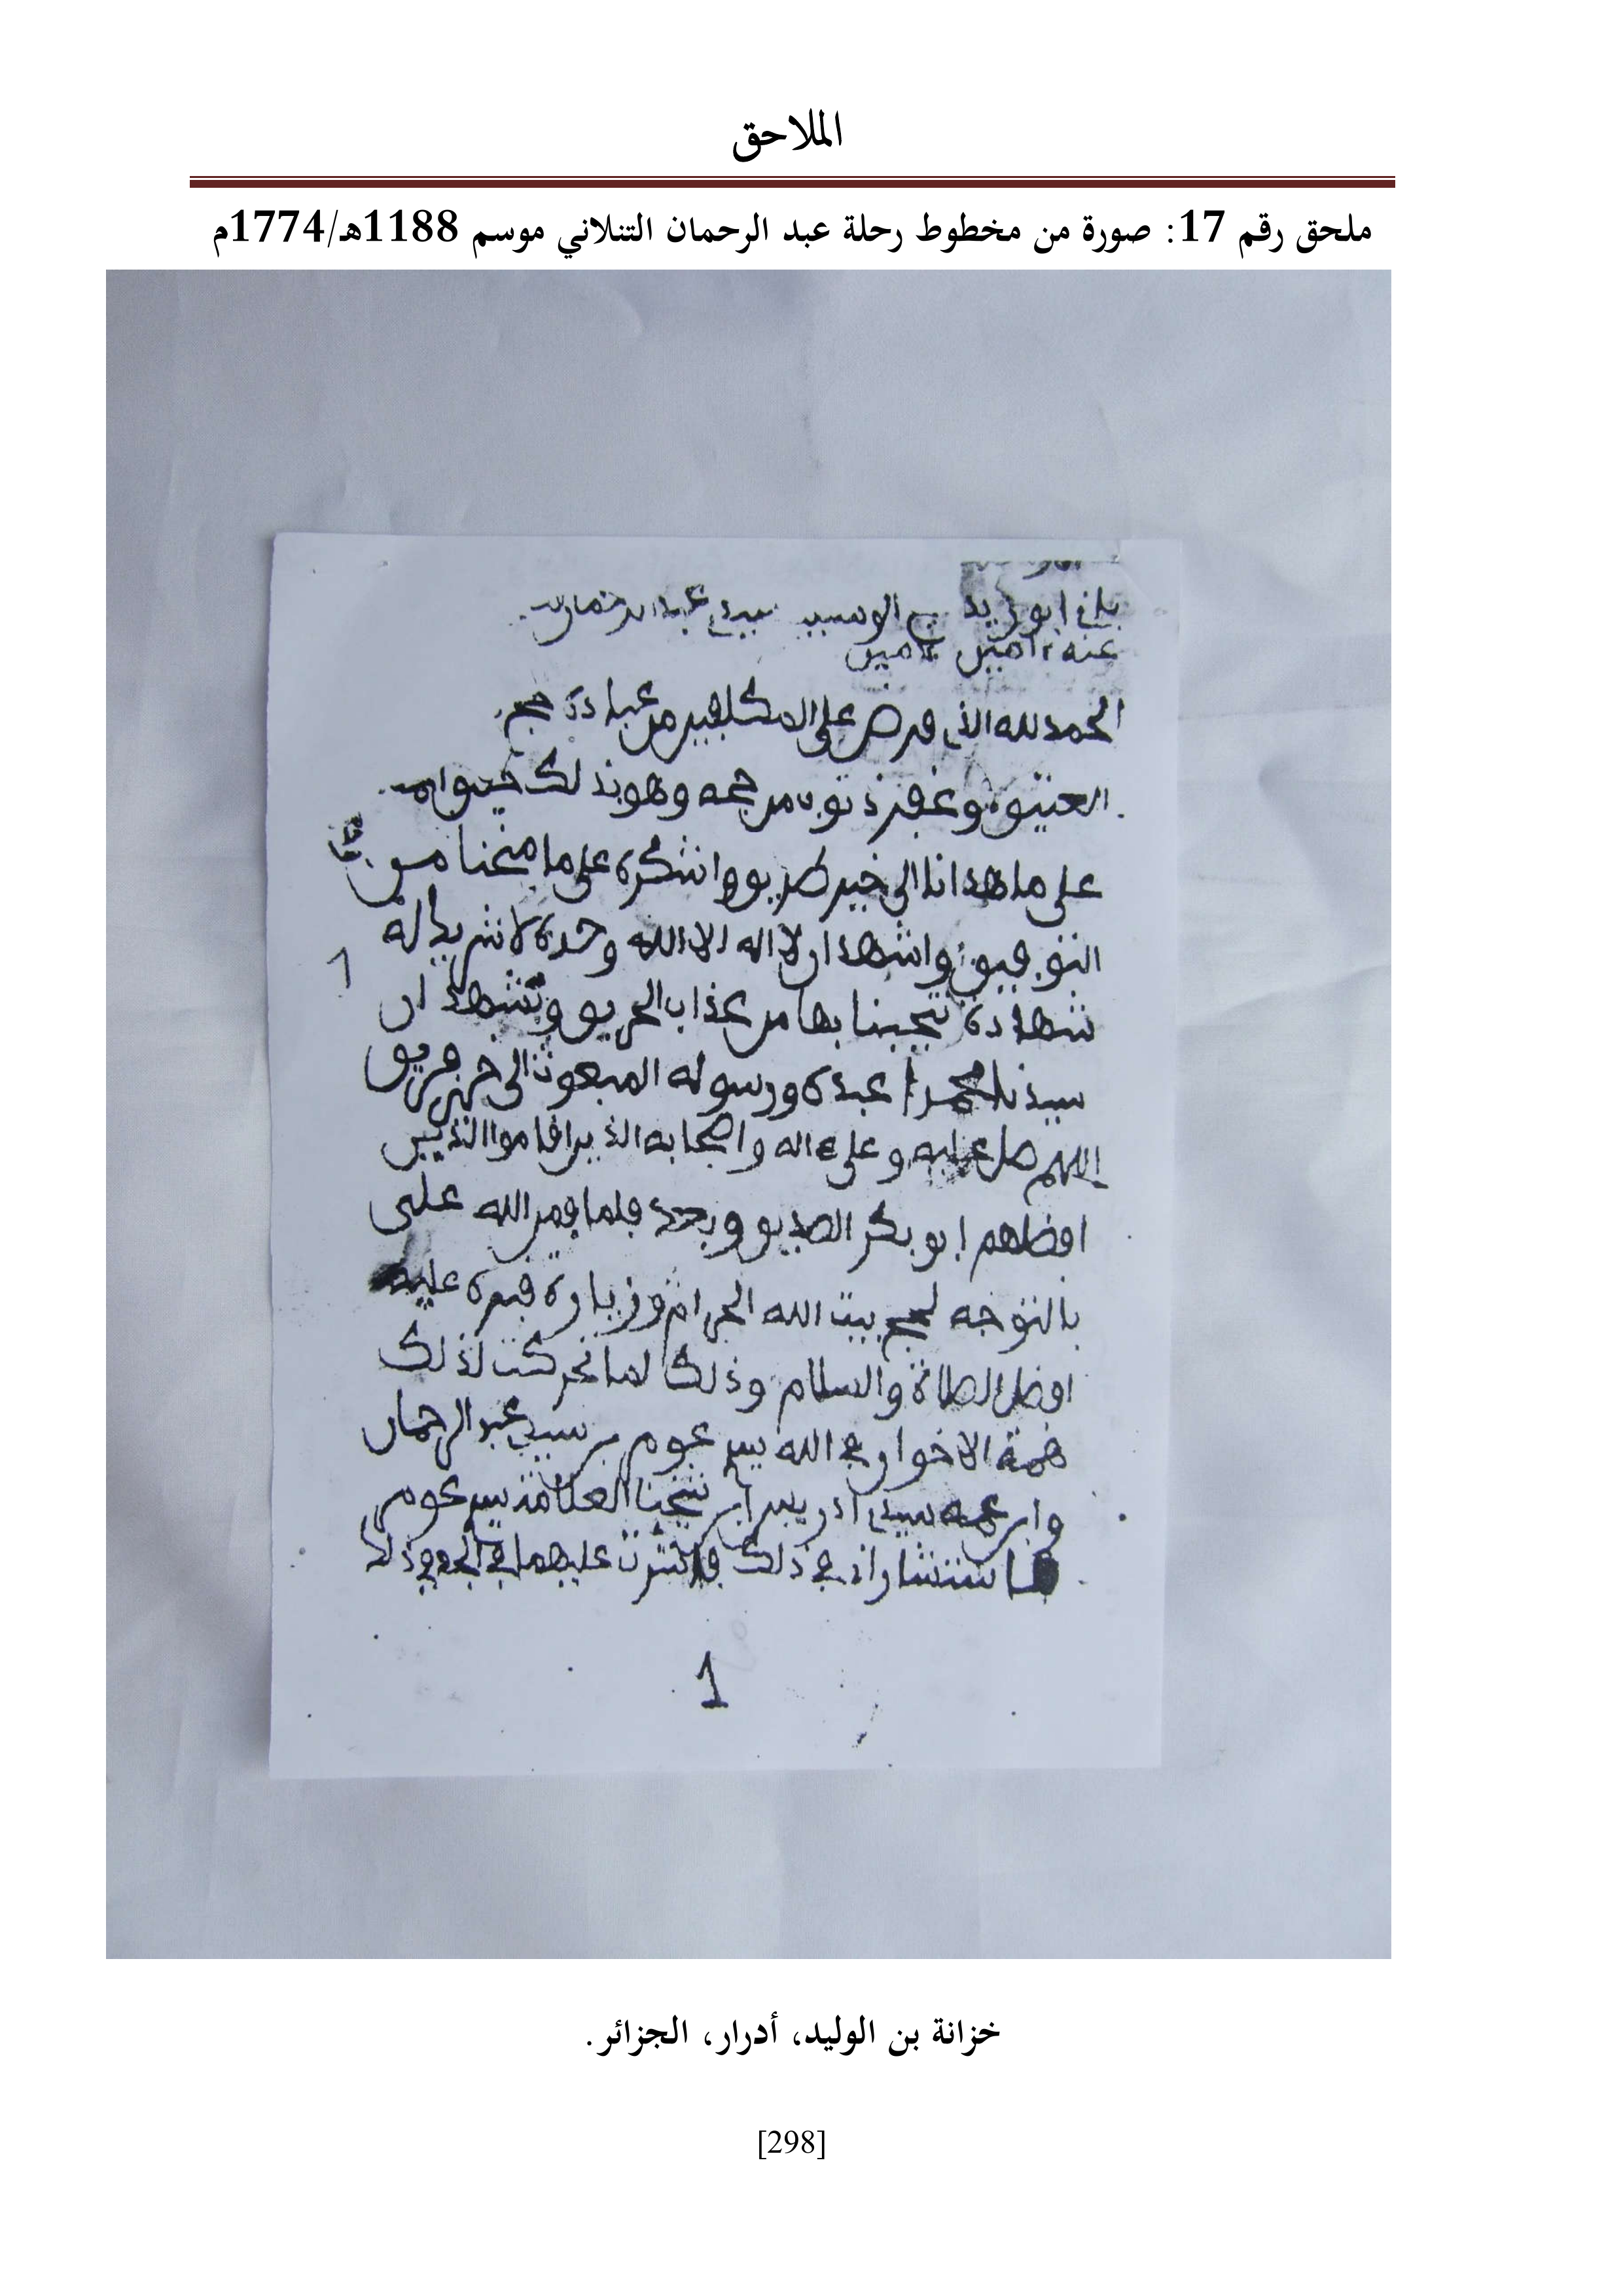 الملاحق
ملحق رقم 17: صورة من مخطوط رحلة عبد الرحمان التنلاني موسم 1188هـ/1774م
ابو زيد سيدي عبد الرحمان
عنه ءامين ءامين
الحمد لله الذي فرض على المكلفين من عباده حج
العتيق وغفر ذنوب من حجه وهو بذلك حقيق
على ما هدانا الى خير طريق واشكره على ما منحنا من
التوفيق واشهد ان لا اله الا الله وحده لا شريك له
شهادة بها من عذاب الحريق ونشهد ان
سيدنا محمدا عبده ورسوله المبعوث الى خير فريق
اللهم صل عليه وعلى ءاله واصحابه الذين اقاموا الدين
افضلهم ابو بكر الصديق وبعد فلما من الله على
بالتوجه لحج بيت الله الحرام وزيارة قبره عليه
افضل الصلاة والسلام وذلك لما تحركت لذلك
همة الاخوان في الله سي عوم بن سيدي عبد الرحمان
وابن عمه سيدي ادريس ابن شيخنا العلامة سي عوم
فاستشاراني في ذلك فاشرت عليهما في
1
1
خزانة بن الوليد، أدرار، الجزائر.
[298]